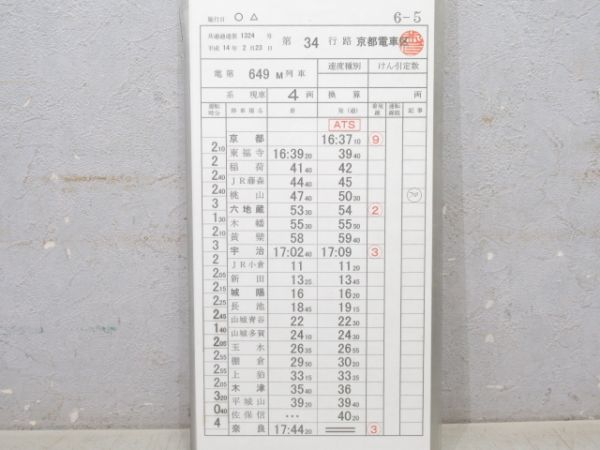 施行日 〇 △ 6-5
共通徳達第 1324 号
平成 14 年 2 月 23 日
第 34 行路 京都電車区
電第 649 M 列車 速度種別 けん引定数
系 現車 4 両 換算 両
運転時分 停車場名 着 発(通) 着発線 運転線路 記事
ATS
京都 16:37 10 9
2 10 東福寺 16:39 20 39 40
2 稲荷 41 40 42
2 40 JR藤森 44 40 45
2 40 桃山 47 40 50 30
3 六地蔵 53 30 54 2
1 30 木幡 55 30 55 50
2 10 黄檗 58 59 40
3 宇治 17:02 40 17:09 3
2 JR小倉 11 11 20
2 05 新田 13 25 13 45
2 15 城陽 16 16 20
2 25 長池 18 45 19 15
2 45 山城青谷 22 22 30
1 40 山城多賀 24 10 24 30
2 05 玉水 26 35 26 55
2 55 棚倉 29 50 30
2 55 上狛 33 15 33 35
2 05 木津 35 40 36
3 20 平城山 39 20 39 40
0 40 佐保信 … 40 20
4 奈良 17:44 20 3